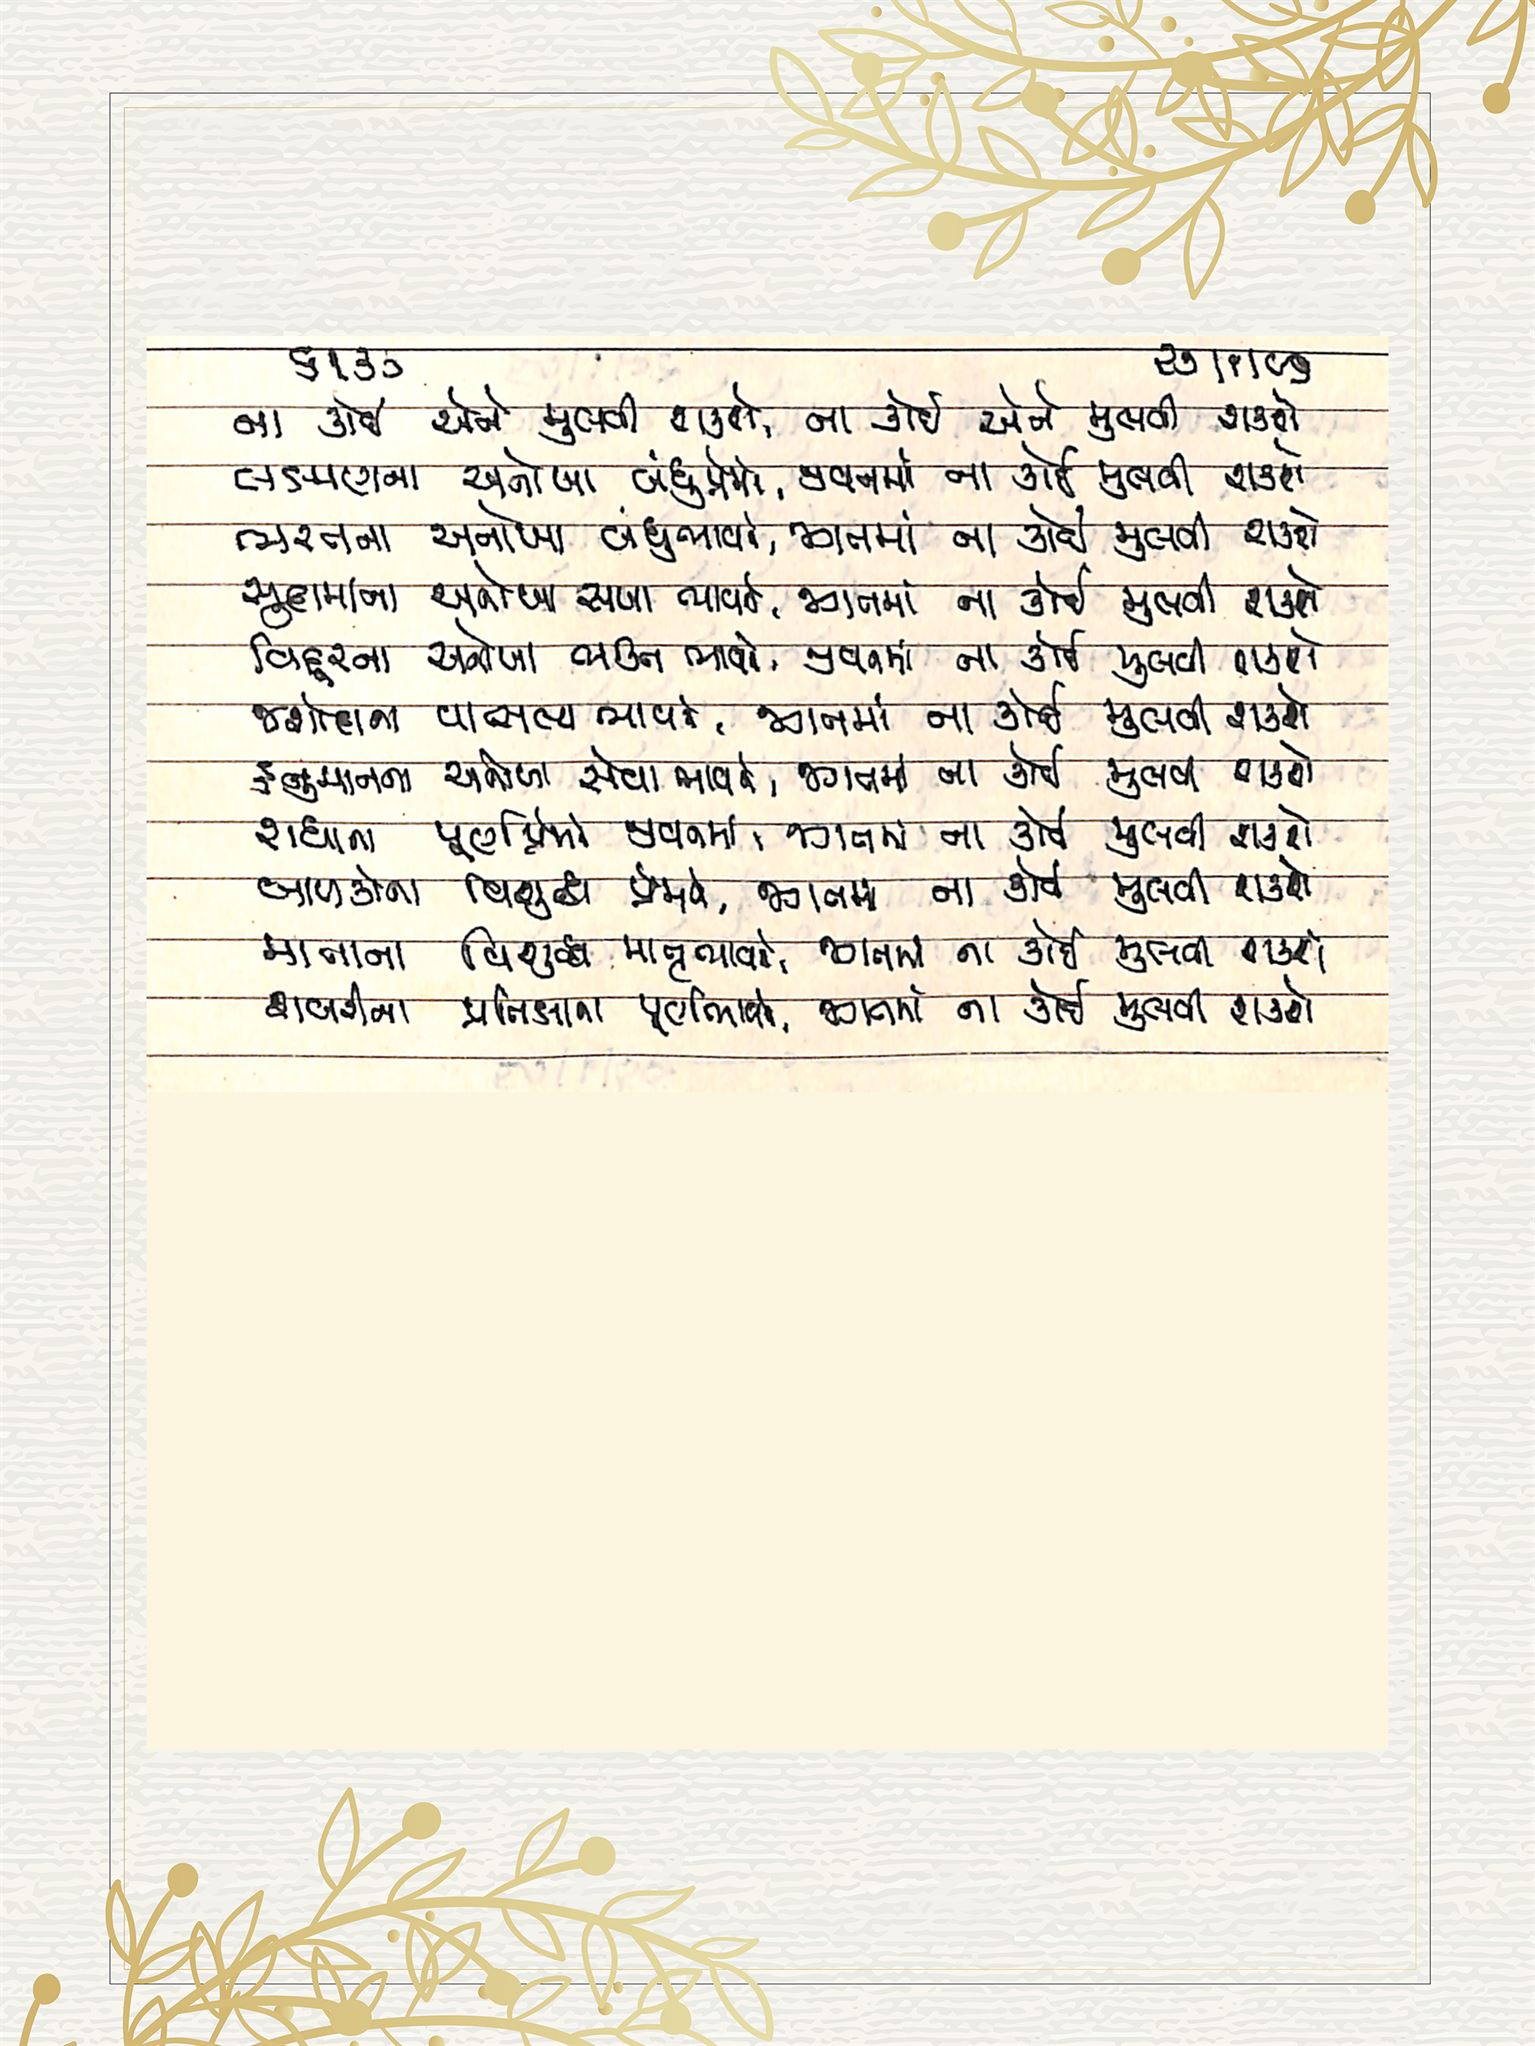 ૬૧૩૦ ૨૭/૧/૯૭
ના કોઈ એને ભુલવી શકશે, ના કોઈ એને ભુલવી શકશે
લક્ષ્મણના અનોખા બંધુપ્રેમને, જીવનમાં ના કોઈ ભુલવી શકશે
ભરતના અનોખા બંધુભાવને, જગતમાં ના કોઈ ભુલવી શકશે
સુદામાના અનોખા સખા ભાવને, જગતમાં ના કોઈ ભુલવી શકશે
વિદૂરના અનોખા ભક્તિ ભાવને, જીવનમાં ના કોઈ ભુલવી શકશે
જશોદાના વાત્સલ્ય ભાવને, જગતમાં ના કોઈ ભુલવી શકશે
હનુમાનના અનોખા સેવા ભાવને, જગતમાં ના કોઈ ભુલવી શકશે
રાધાના પૂર્ણપ્રેમને જીવનમાં, જગતમાં ના કોઈ ભુલવી શકશે
બાળકોના વિશુદ્ધ પ્રેમને, જગતમાં ના કોઈ ભુલવી શકશે
માતાના વિશુદ્ધ માતૃભાવને, જગતમાં ના કોઈ ભુલવી શકશે
શબરીના પ્રતિક્ષાના પૂર્ણભાવને, જગતમાં ના કોઈ ભુલવી શકશે